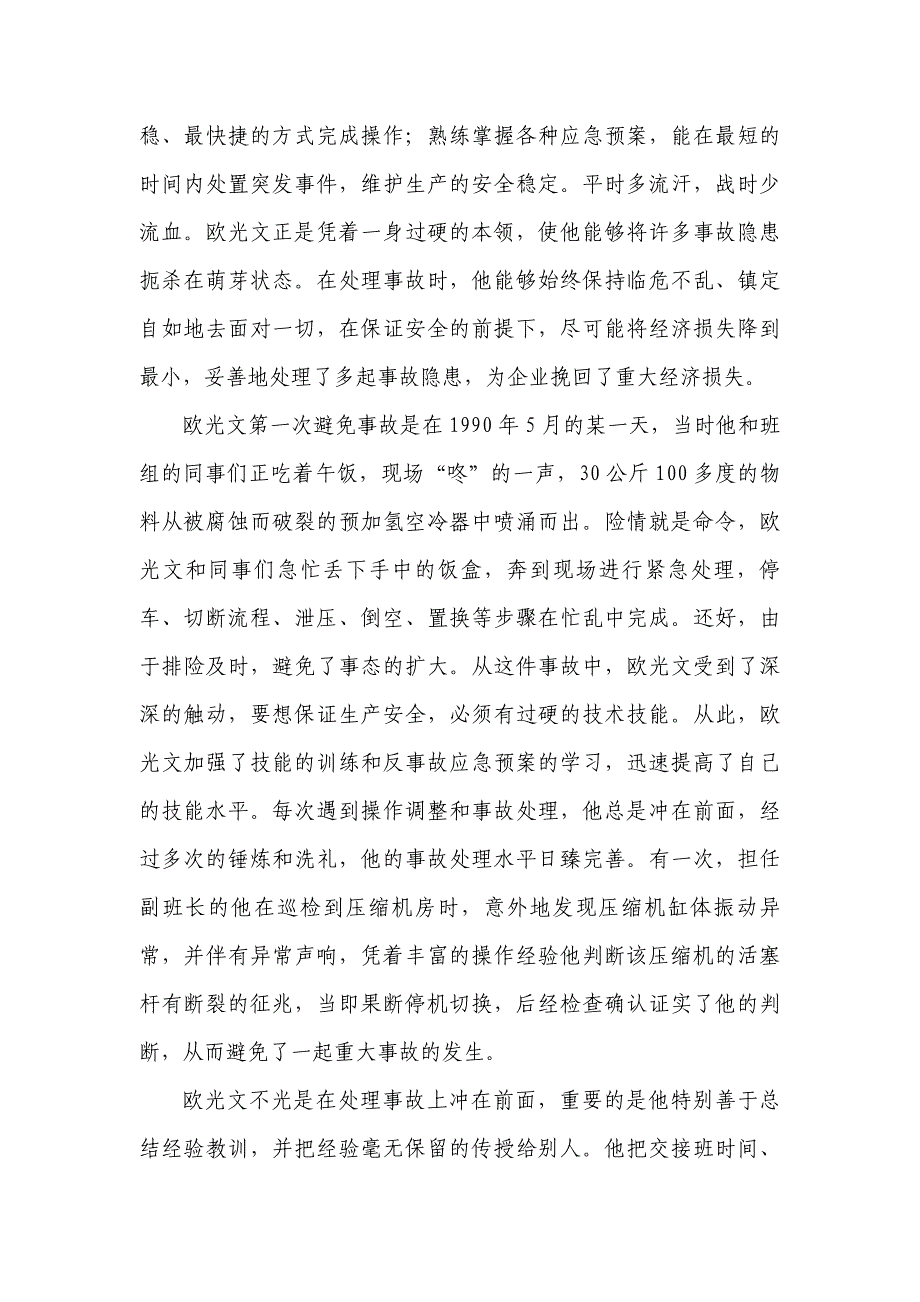 稳、最快捷的方式完成操作；熟练掌握各种应急预案，能在最短的
时间内处置突发事件，维护生产的安全稳定。平时多流汗，战时少
流血。欧光文正是凭着一身过硬的本领，使他能够将许多事故隐患
扼杀在萌芽状态。在处理事故时，他能够始终保持临危不乱、镇定
自如地去面对一切，在保证安全的前提下，尽可能将经济损失降到
最小，妥善地处理了多起事故隐患，为企业挽回了重大经济损失。
欧光文第一次避免事故是在 1990 年 5 月的某一天，当时他和班
组的同事们正吃着午饭，现场“咚”的一声，30 公斤 100 多度的物
料从被腐蚀而破裂的预加氢空冷器中喷涌而出。险情就是命令，欧
光文和同事们急忙丢下手中的饭盒，奔到现场进行紧急处理，停
车、切断流程、泄压、倒空、置换等步骤在忙乱中完成。还好，由
于排险及时，避免了事态的扩大。从这件事故中，欧光文受到了深
深的触动，要想保证生产安全，必须有过硬的技术技能。从此，欧
光文加强了技能的训练和反事故应急预案的学习，迅速提高了自己
的技能水平。每次遇到操作调整和事故处理，他总是冲在前面，经
过多次的锤炼和洗礼，他的事故处理水平日臻完善。有一次，担任
副班长的他在巡检到压缩机房时，意外地发现压缩机缸体振动异
常，并伴有异常声响，凭着丰富的操作经验他判断该压缩机的活塞
杆有断裂的征兆，当即果断停机切换，后经检查确认证实了他的判
断，从而避免了一起重大事故的发生。
欧光文不光是在处理事故上冲在前面，重要的是他特别善于总
结经验教训，并把经验毫无保留的传授给别人。他把交接班时间、